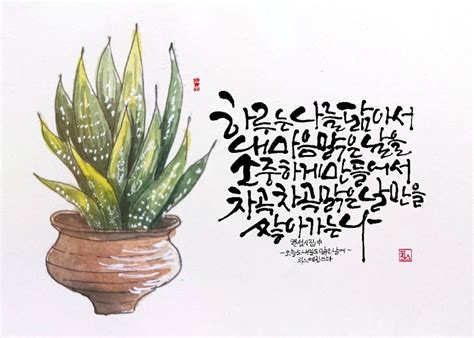 하루는 나를 닮아서
내 마음 맑은 날을
소중하게 만들어서
차곡차곡 맑은 날만을
쌓아가는 나
오늘도 내일도 맑은 날에